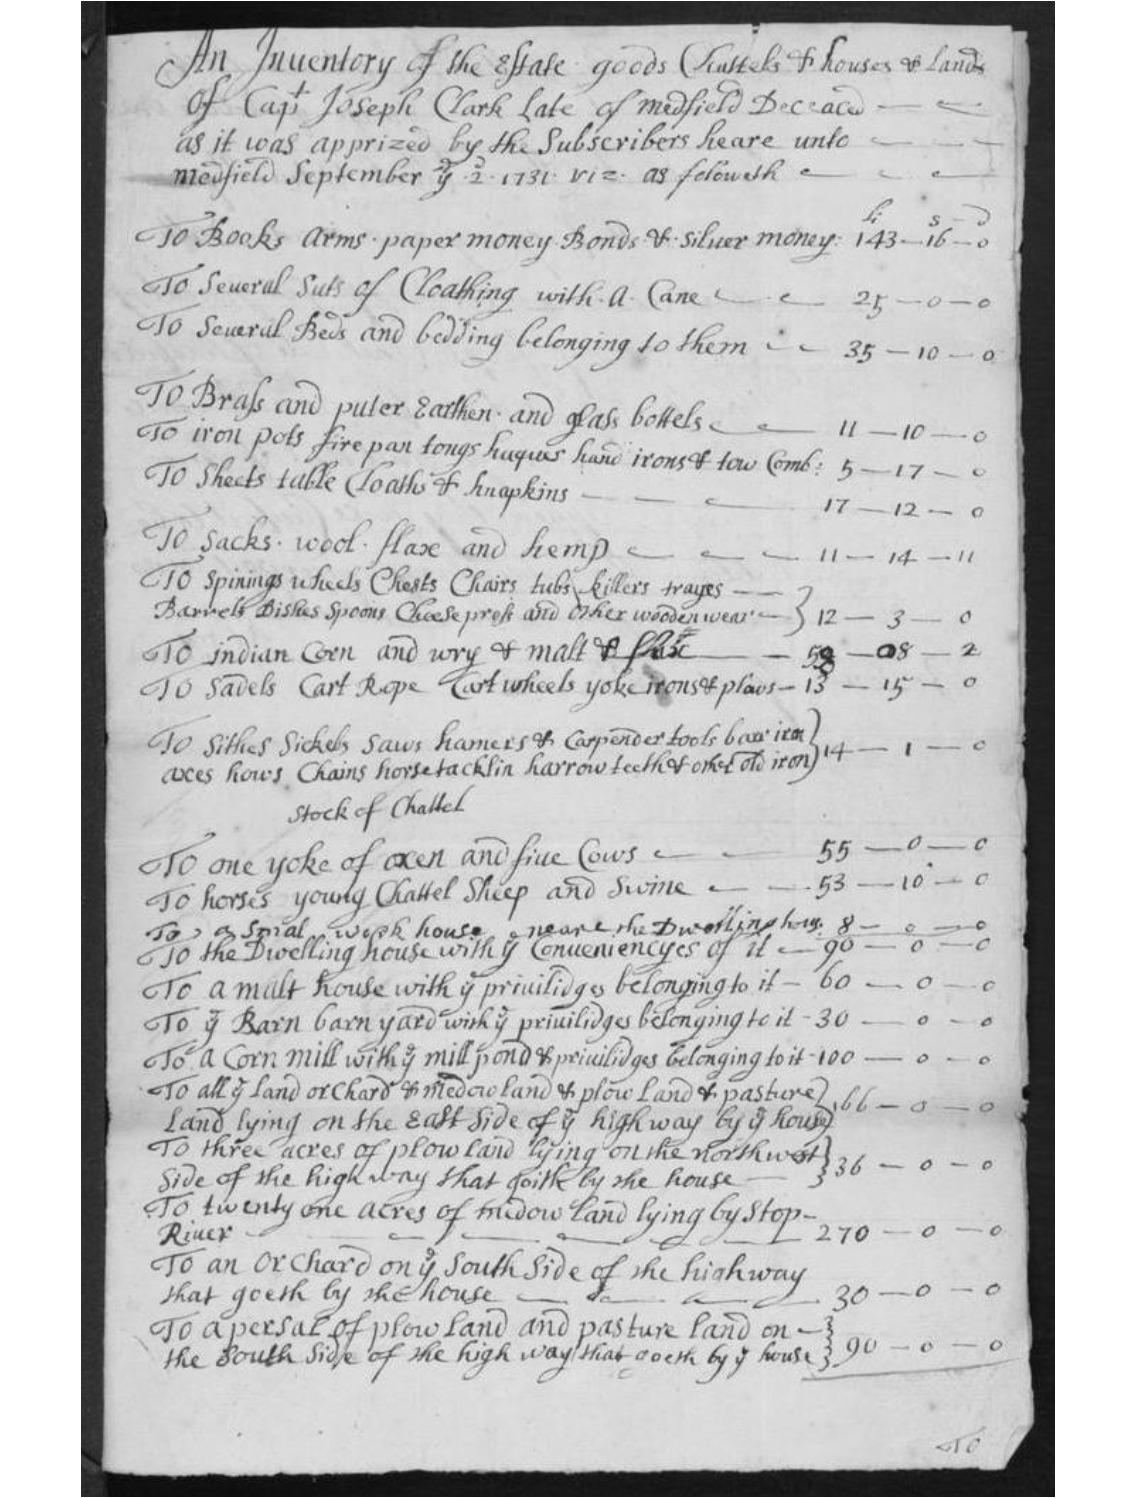 An Inuentory of the Estate goods Chattels & houses & Lands
Of Capt Joseph Clark Late of medfield Deceacd
as it was apprized by the Subscribers heare unto
medfield September ye 2d 1731 viz as foloweth
li s D
To Books Arms paper money Bonds & siluer money: 143-16-0
To Seueral Suts of Cloathing with A Cane 25-0-0
To Seueral Beds and bedding belonging to them 35-10-0
To Brass and puter Earthen and glass bottels 11-10-0
To iron pots fire pan tongs hand irons & tow Comb: 5-17-0
To Sheets table Cloaths & knapkins 17-12-0
To Sacks wool flax and hemp 11-14-11
To Spinings wheels Chests Chairs tubs killers trayes
Barrels Dishes Spoons Cheese press and other wooden wear 12-3-0
To indian Corn and wry & malt & 08-2
To Sadels Cart Rope Cart wheels yoke irons & plows-13-15-0
To Sithes Sickels Saws hamers & Carpender tools barr iron
axes hows Chains horse tacklin harrow teeth & other old iron 14-1-0
Stock of Chattel
To one yoke of oxen and fiue Cows 55-0-0
To horses young Chattel Sheep and Swine 53-10-0
To a smal work house neare the Dwelling hous: 8-0-0
To the Dwelling house with ye Conueniencyes of it 90-0-0
To a malt house with ye priuilidges belonging to it-60-0-0
To ye Barn barn yard with ye priuilidges belonging to it-30-0-0
To a Corn mill with ye mill pond & priuilidges belonging to it-100-0-0
To all ye Land orchard & medow land & plow land & pasture
Land lying on the East Side of ye high way by ye house 166-0-0
To three acres of plow land lying on the northwest
Side of the high way that goith by the house 36-0-0
To twenty one acres of medow land lying by Stop-
Riuer 270-0-0
To an Orchard on ye South Side of the highway
that goeth by the house 30-0-0
To a persal of plow land and pasture land on-
the South Side of the high way that goeth by ye house 90-0-0
To